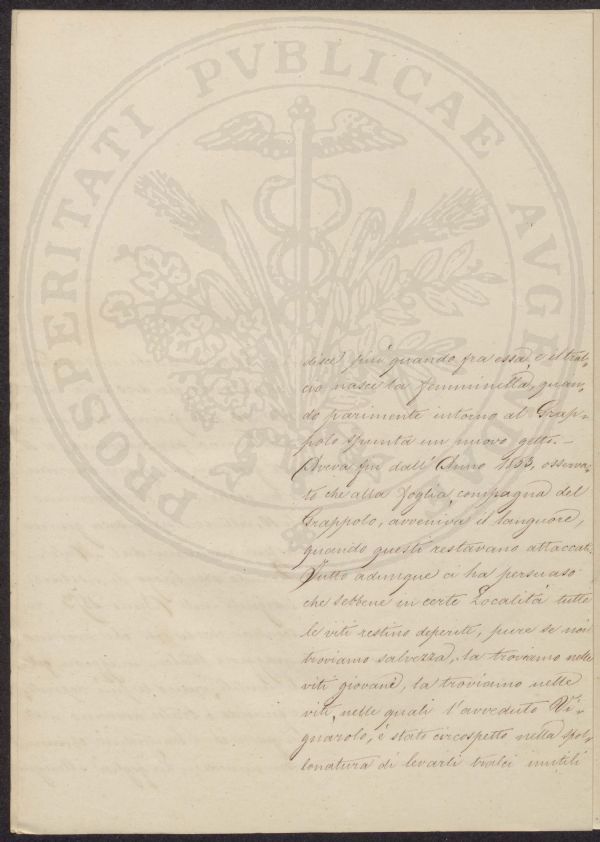 PROSPERITATI PVBLICAE AVGENDAE
disce più quando fra essa, e il tral-
cio nasce la femminella, quan-
do parimente intorno al Grap-
polo spunta un nuovo getto. -
Aveva fin dall' Anno 1853, osserva-
to che alla foglia compagna del
Grappolo, avveniva il languore,
quando questi restavano attaccati.
Tutto adunque ci ha persuaso
che sebbene in certe Località tutte
le viti restino deperite, pure se noi
troviamo salvezza, la troviamo nelle
viti giovani, la troviamo nelle
viti, nelle quali l'avveduto Vi-
gnarolo, è stato circospetto nella spol-
lonatura di levarli tralci inutili